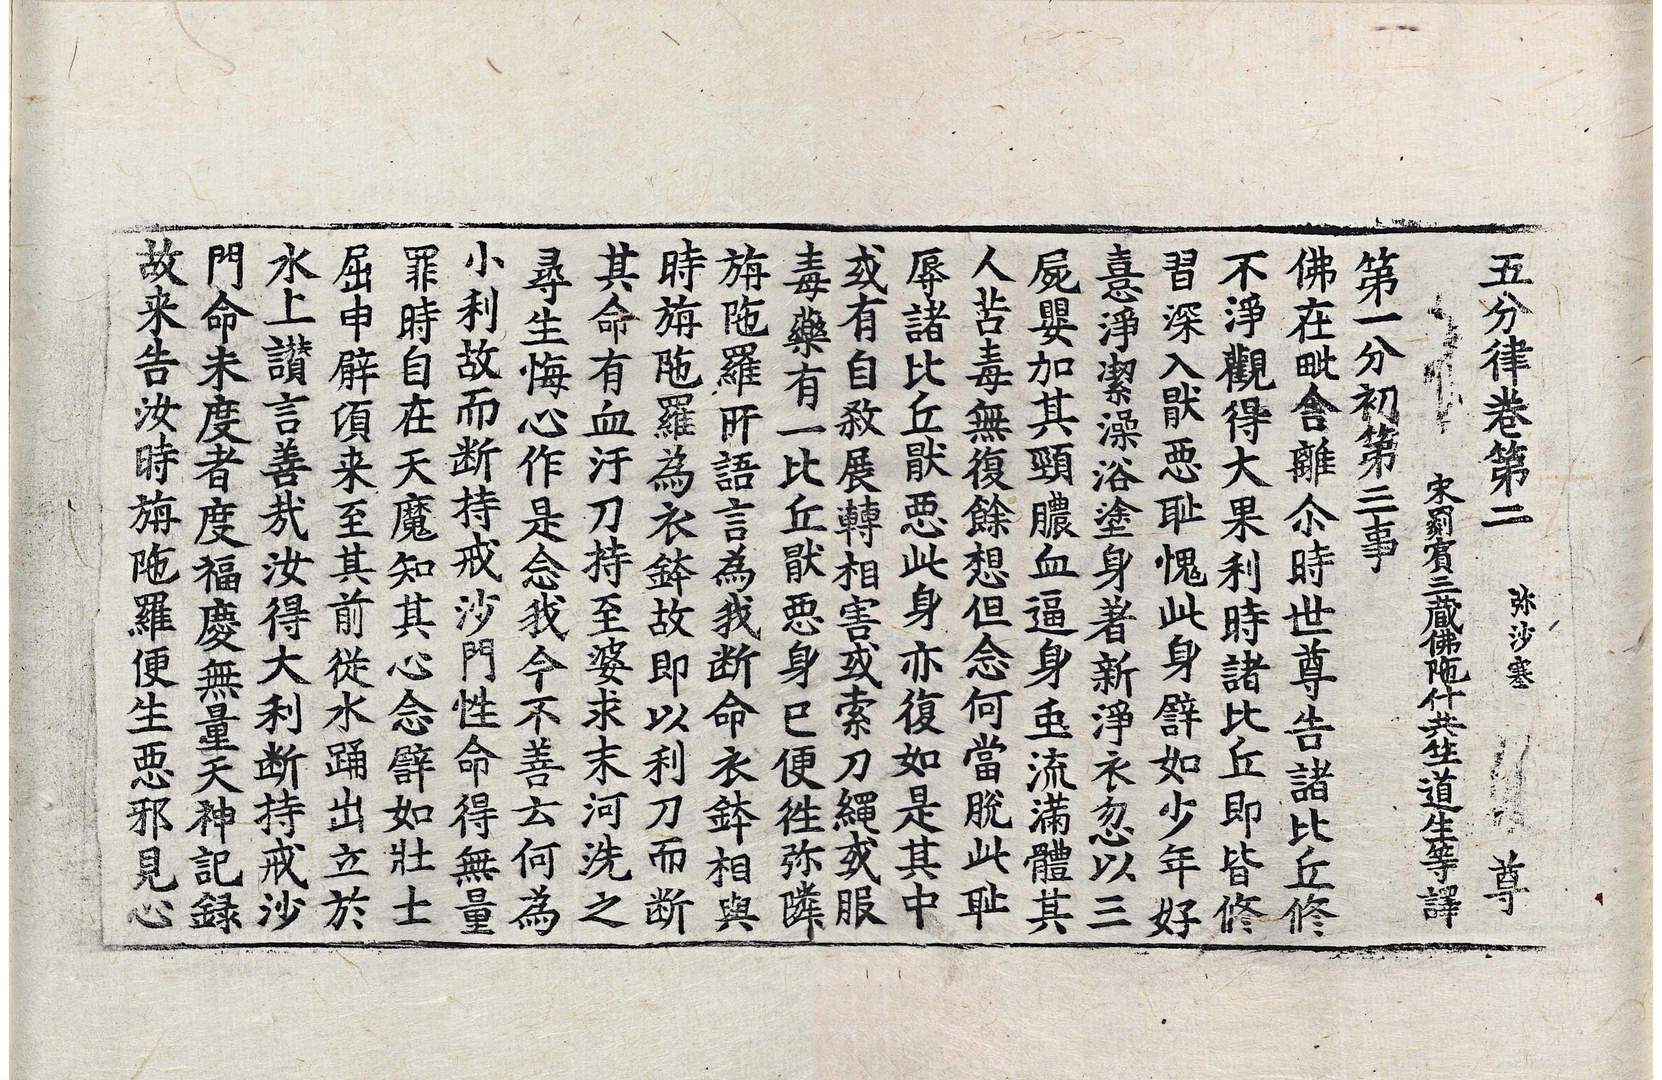 五分律卷第二 弥沙塞 尊
宋罽賓三藏佛陁什共竺道生等譯
第一分初第三事
佛在毗舍離尒時世尊告諸比丘修
不淨觀得大果利時諸比丘即皆修
習深入猒惡恥愧此身譬如少年好
憙淨潔澡浴塗身著新淨衣忽以三
屍嬰加其頸膿血逼身虫流滿體其
人苦毒無復餘想但念何當脫此恥
辱諸比丘猒惡此身亦復如是其中
或有自敘展轉相害或索刀繩或服
毒藥有一比丘猒惡身已便徃弥隣
旃陁羅所語言為我断命衣鉢相與
時旃陁羅為衣鉢故即以利刀而断
其命有血汙刀持至婆求末河洗之
尋生悔心作是念我今不善云何為
小利故而断持戒沙門性命得無量
罪時自在天魔知其心念譬如壯士
屈申臂頃来至其前從水踊出立於
水上讃言善㢤汝得大利断持戒沙
門命未度者度福慶無量天神記録
故来告汝時旃陁羅便生惡邪見心